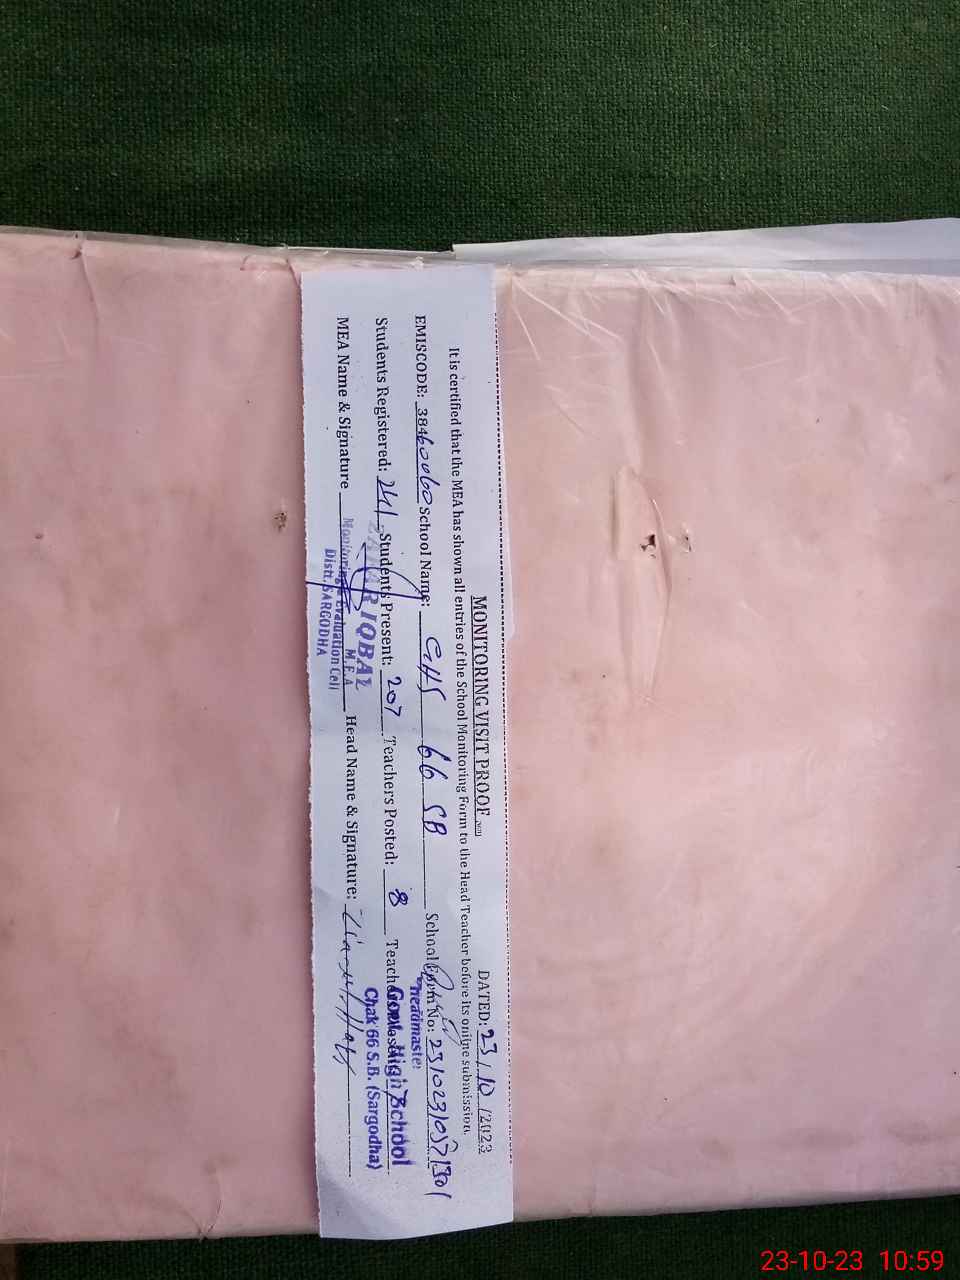 MONITORING VISIT PROOF
DATED: 23/10/2023
It is certified that the MEA has shown all entries of the School Monitoring Form to the Head Teacher before its online submission.
EMISCODE: 38460060 School Name: GHS 66 SB School Form No:
Students Registered: 241 Students Present: 207 Teachers Posted: 8
MEA Name & Signature Head Name & Signature:
ZAFAR IQBAL
M.E.A
Monitoring & Evaluation Cell
Distt. SARGODHA
Headmaster
Govt. High School
Chak 66 S.B. (Sargodha)
23-10-23 10:59